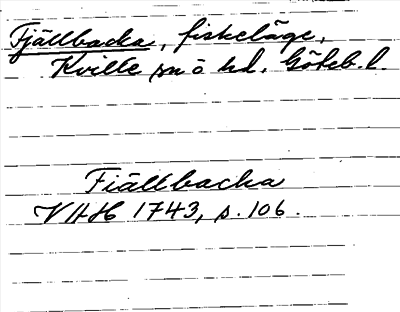 Fjällbacka, fiskeläge,
Kville sn o hd, Göteb. l.
Fiällbacka
VHH 1743, s. 106.